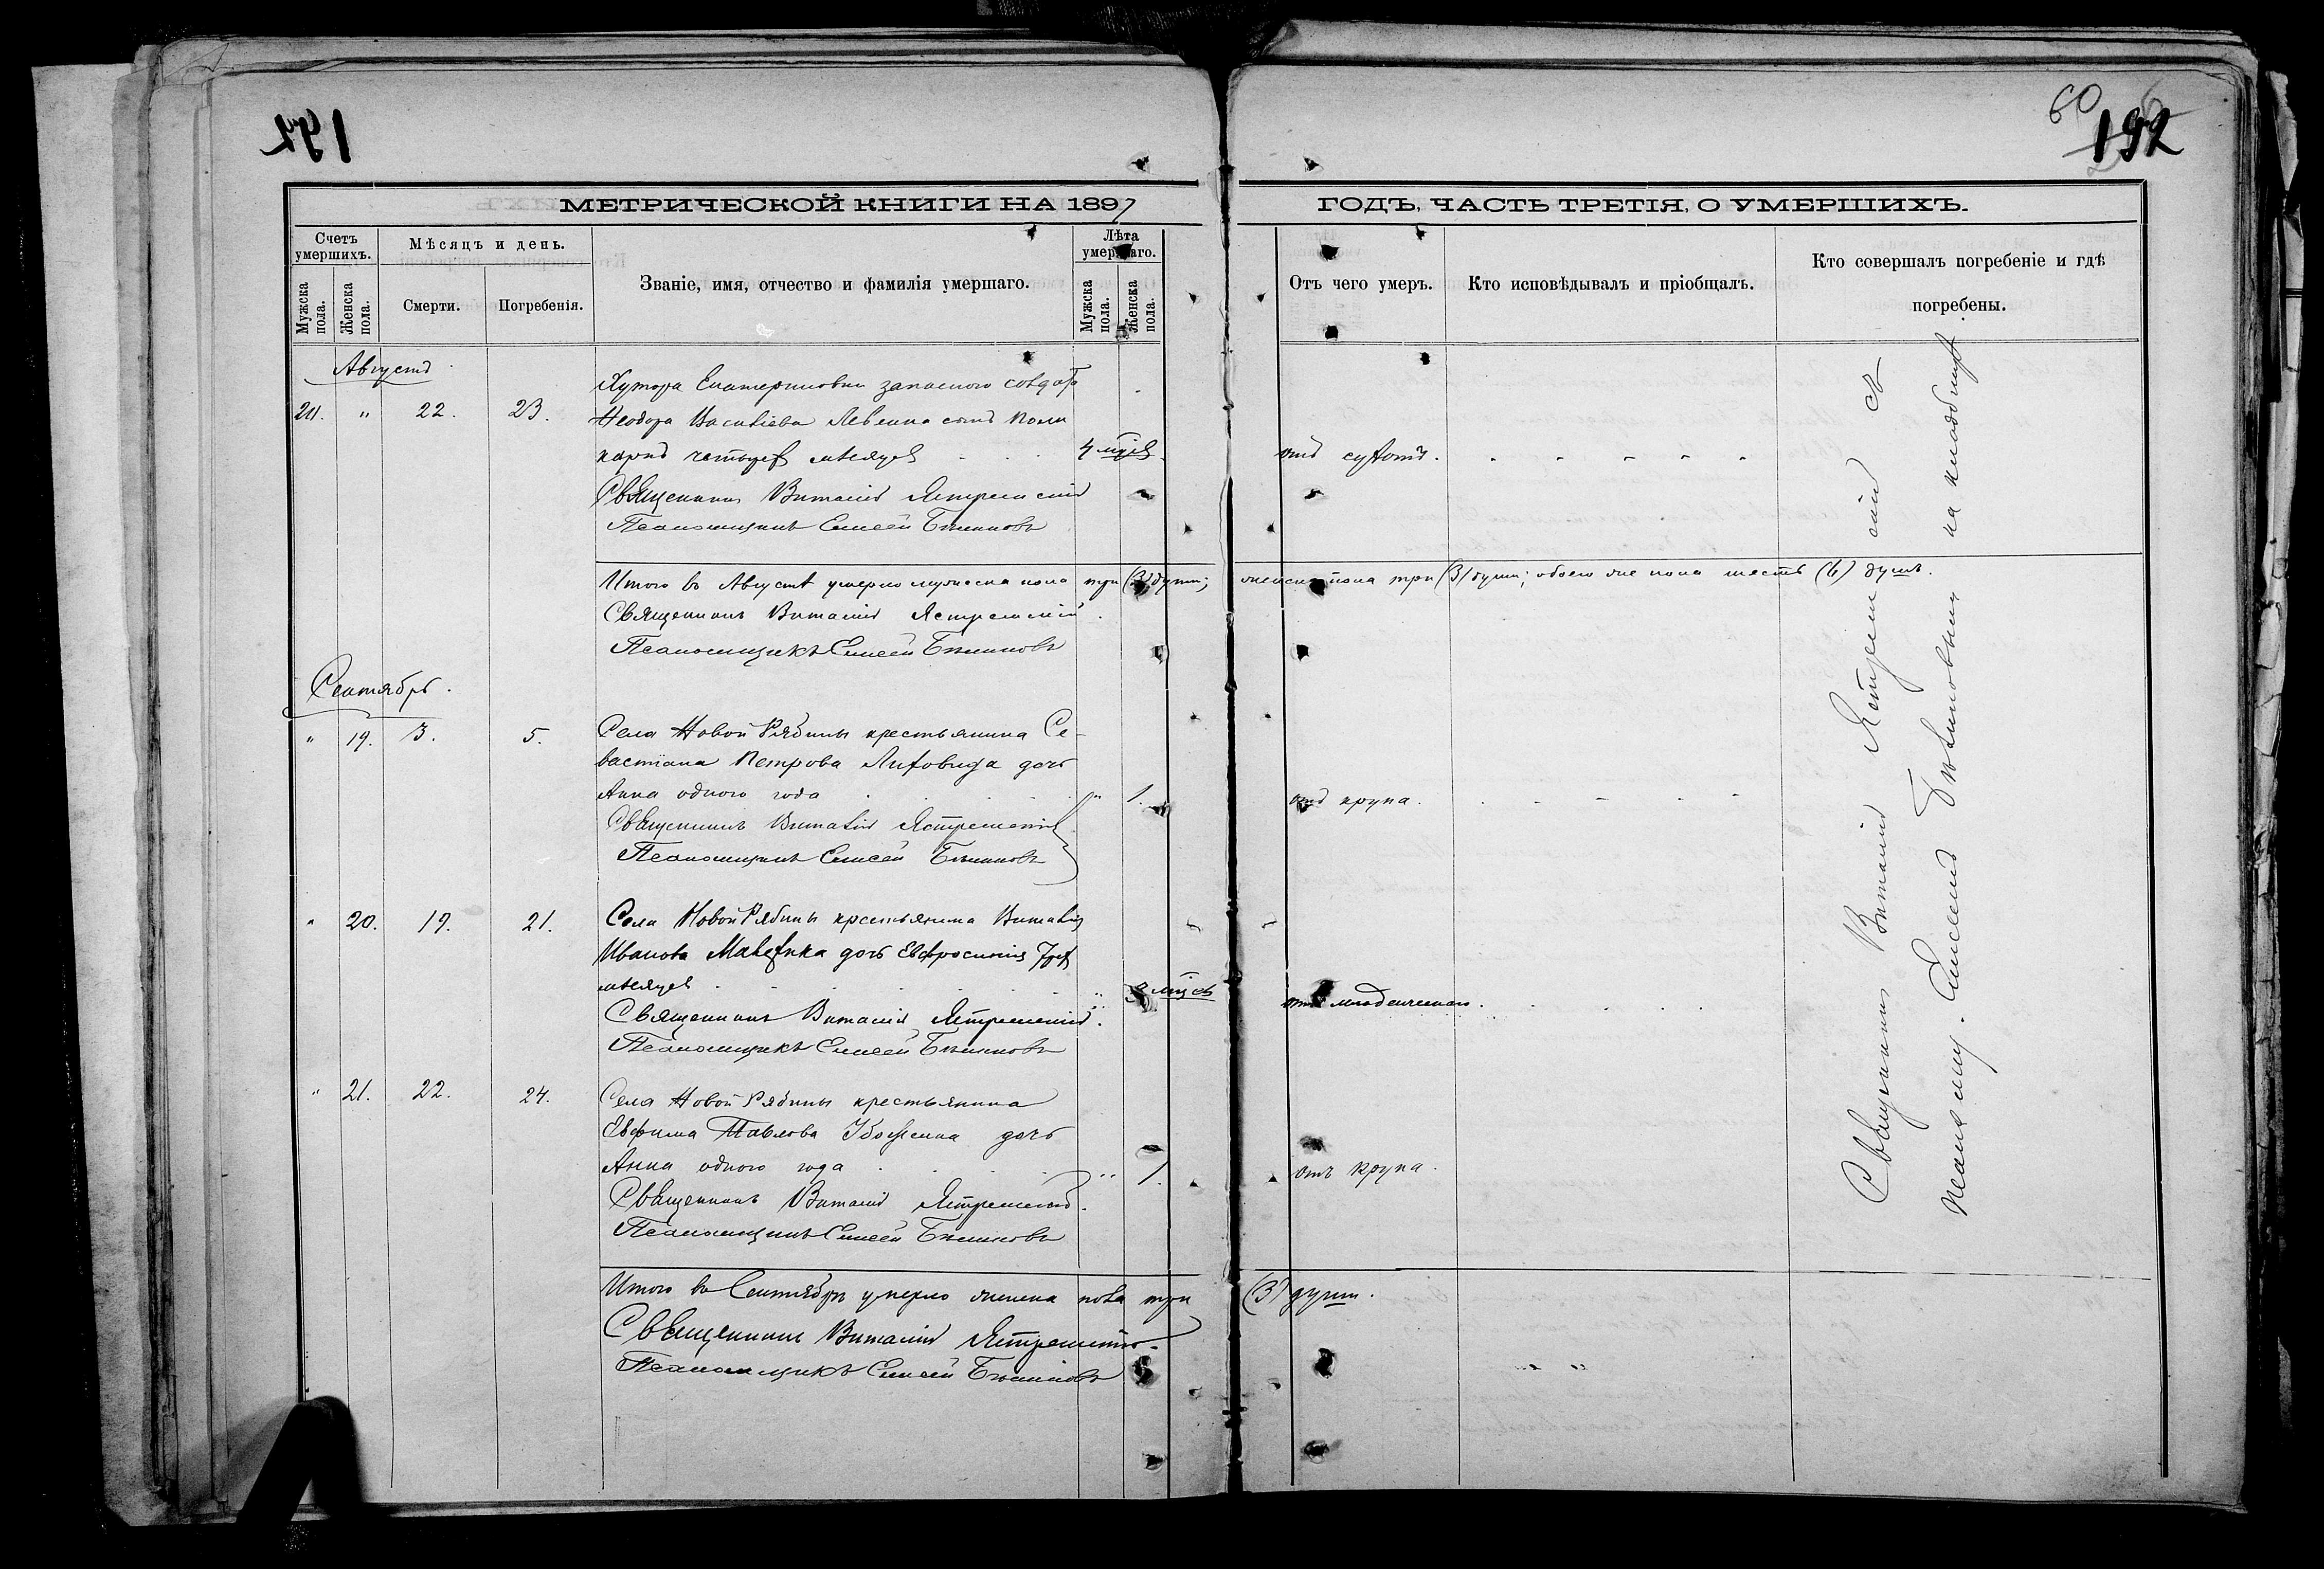 192
60
192
МЕТРИЧЕСКОЙ КНИГИ НА 1897
ГОДЪ, ЧАСТЬ ТРЕТІЯ, О УМЕРШИХЪ.
Счетъ умершихъ.
Мѣсяцъ и день.
Званіе, имя, отчество и фамилія умершаго.
Лѣта умершаго.
Мужска пола.
Женска пола.
Смерти.
Погребенія.
Мужска пола.
Женска пола.
Отъ чего умеръ.
Кто исповѣдывалъ и пріобщалъ.
Кто совершалъ погребеніе и гдѣ
погребены.
Августъ
Хутора Екатериновки запаснаго солдата
" 22. 23. Ѳеодора Васильева сынъ Поли
карпъ четырехъ мѣсяцевъ 4 мѣсяц. отъ
Священникъ Виталій Ястремскій
Псаломщикъ Елисей
Итого въ Августѣ умерло мужеска пола три (3) души; женска пола три (3) души; обоего же пола шесть (6) душъ.
Священникъ Виталій Ястремскій.
Псаломщикъ Елисей
Сентябрь.
" 19. 3. 5. Села Новой Рябины крестьянина Се-
вастіана Петрова дочь
Анна одного года " 1. отъ крупа.
Священникъ Виталій Ястремскій
Псаломщикъ Елисей
" 20. 19. 21. Села Новой Рябины крестьянина Виталія
Иванова дочь Евфросинія трехъ
мѣсяцевъ " 3 мѣсяц. отъ младенческаго.
Священникъ Виталій Ястремскій.
Псаломщикъ Елисей
" 21. 22. 24. Села Новой Рябины крестьянина
Евфима Павлова дочь
Анна одного года " 1. отъ крупа.
Священникъ Виталій Ястремскій.
Псаломщикъ Елисей
Итого въ Сентябрѣ умерло женска пола три (3) души.
Священникъ Виталій Ястремскій.
Псаломщикъ Елисей
Священникъ Виталій Ястремскій съ
Елисеемъ на кладбищѣ